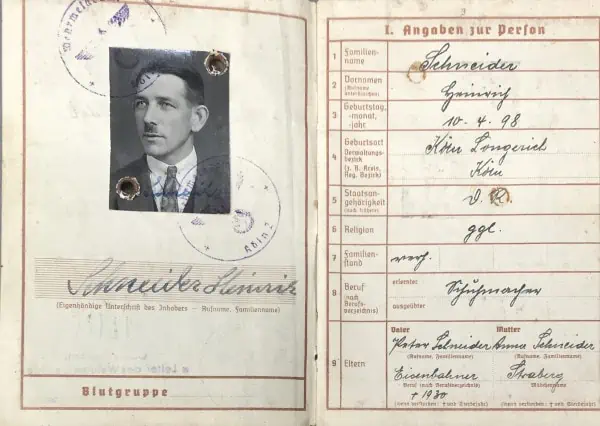 Wehrmelde
Köln 2
Schneider Heinrich
(Eigenhändige Unterschrift des Inhabers – Rufname, Familienname)
Blutgruppe
3
I. Angaben zur Person
1 Familienname Schneider
2 Vornamen (Rufname unterstreichen) Heinrich
3 Geburtstag, -monat, -jahr 10. 4. 98
4 Geburtsort Verwaltungsbezirk (z. B. Kreis, Reg. Bezirk) Köln Longerich Köln
5 Staatsangehörigkeit (auch frühere) D. R.
6 Religion ggl.
7 Familienstand verh.
8 Beruf (nach Berufsverzeichnis) erlernter Schuhmacher
ausgeübter
9 Eltern
Vater Mutter
Peter Schneider Anna Schneider
(Rufname, Familienname) (Rufname, Familienname)
Eisenbahner Straberg
Beruf (nach Berufsverzeichnis) Mädchenname
† 1930
(wenn verstorben: † und Sterbejahr) (wenn verstorben: † und Sterbejahr)